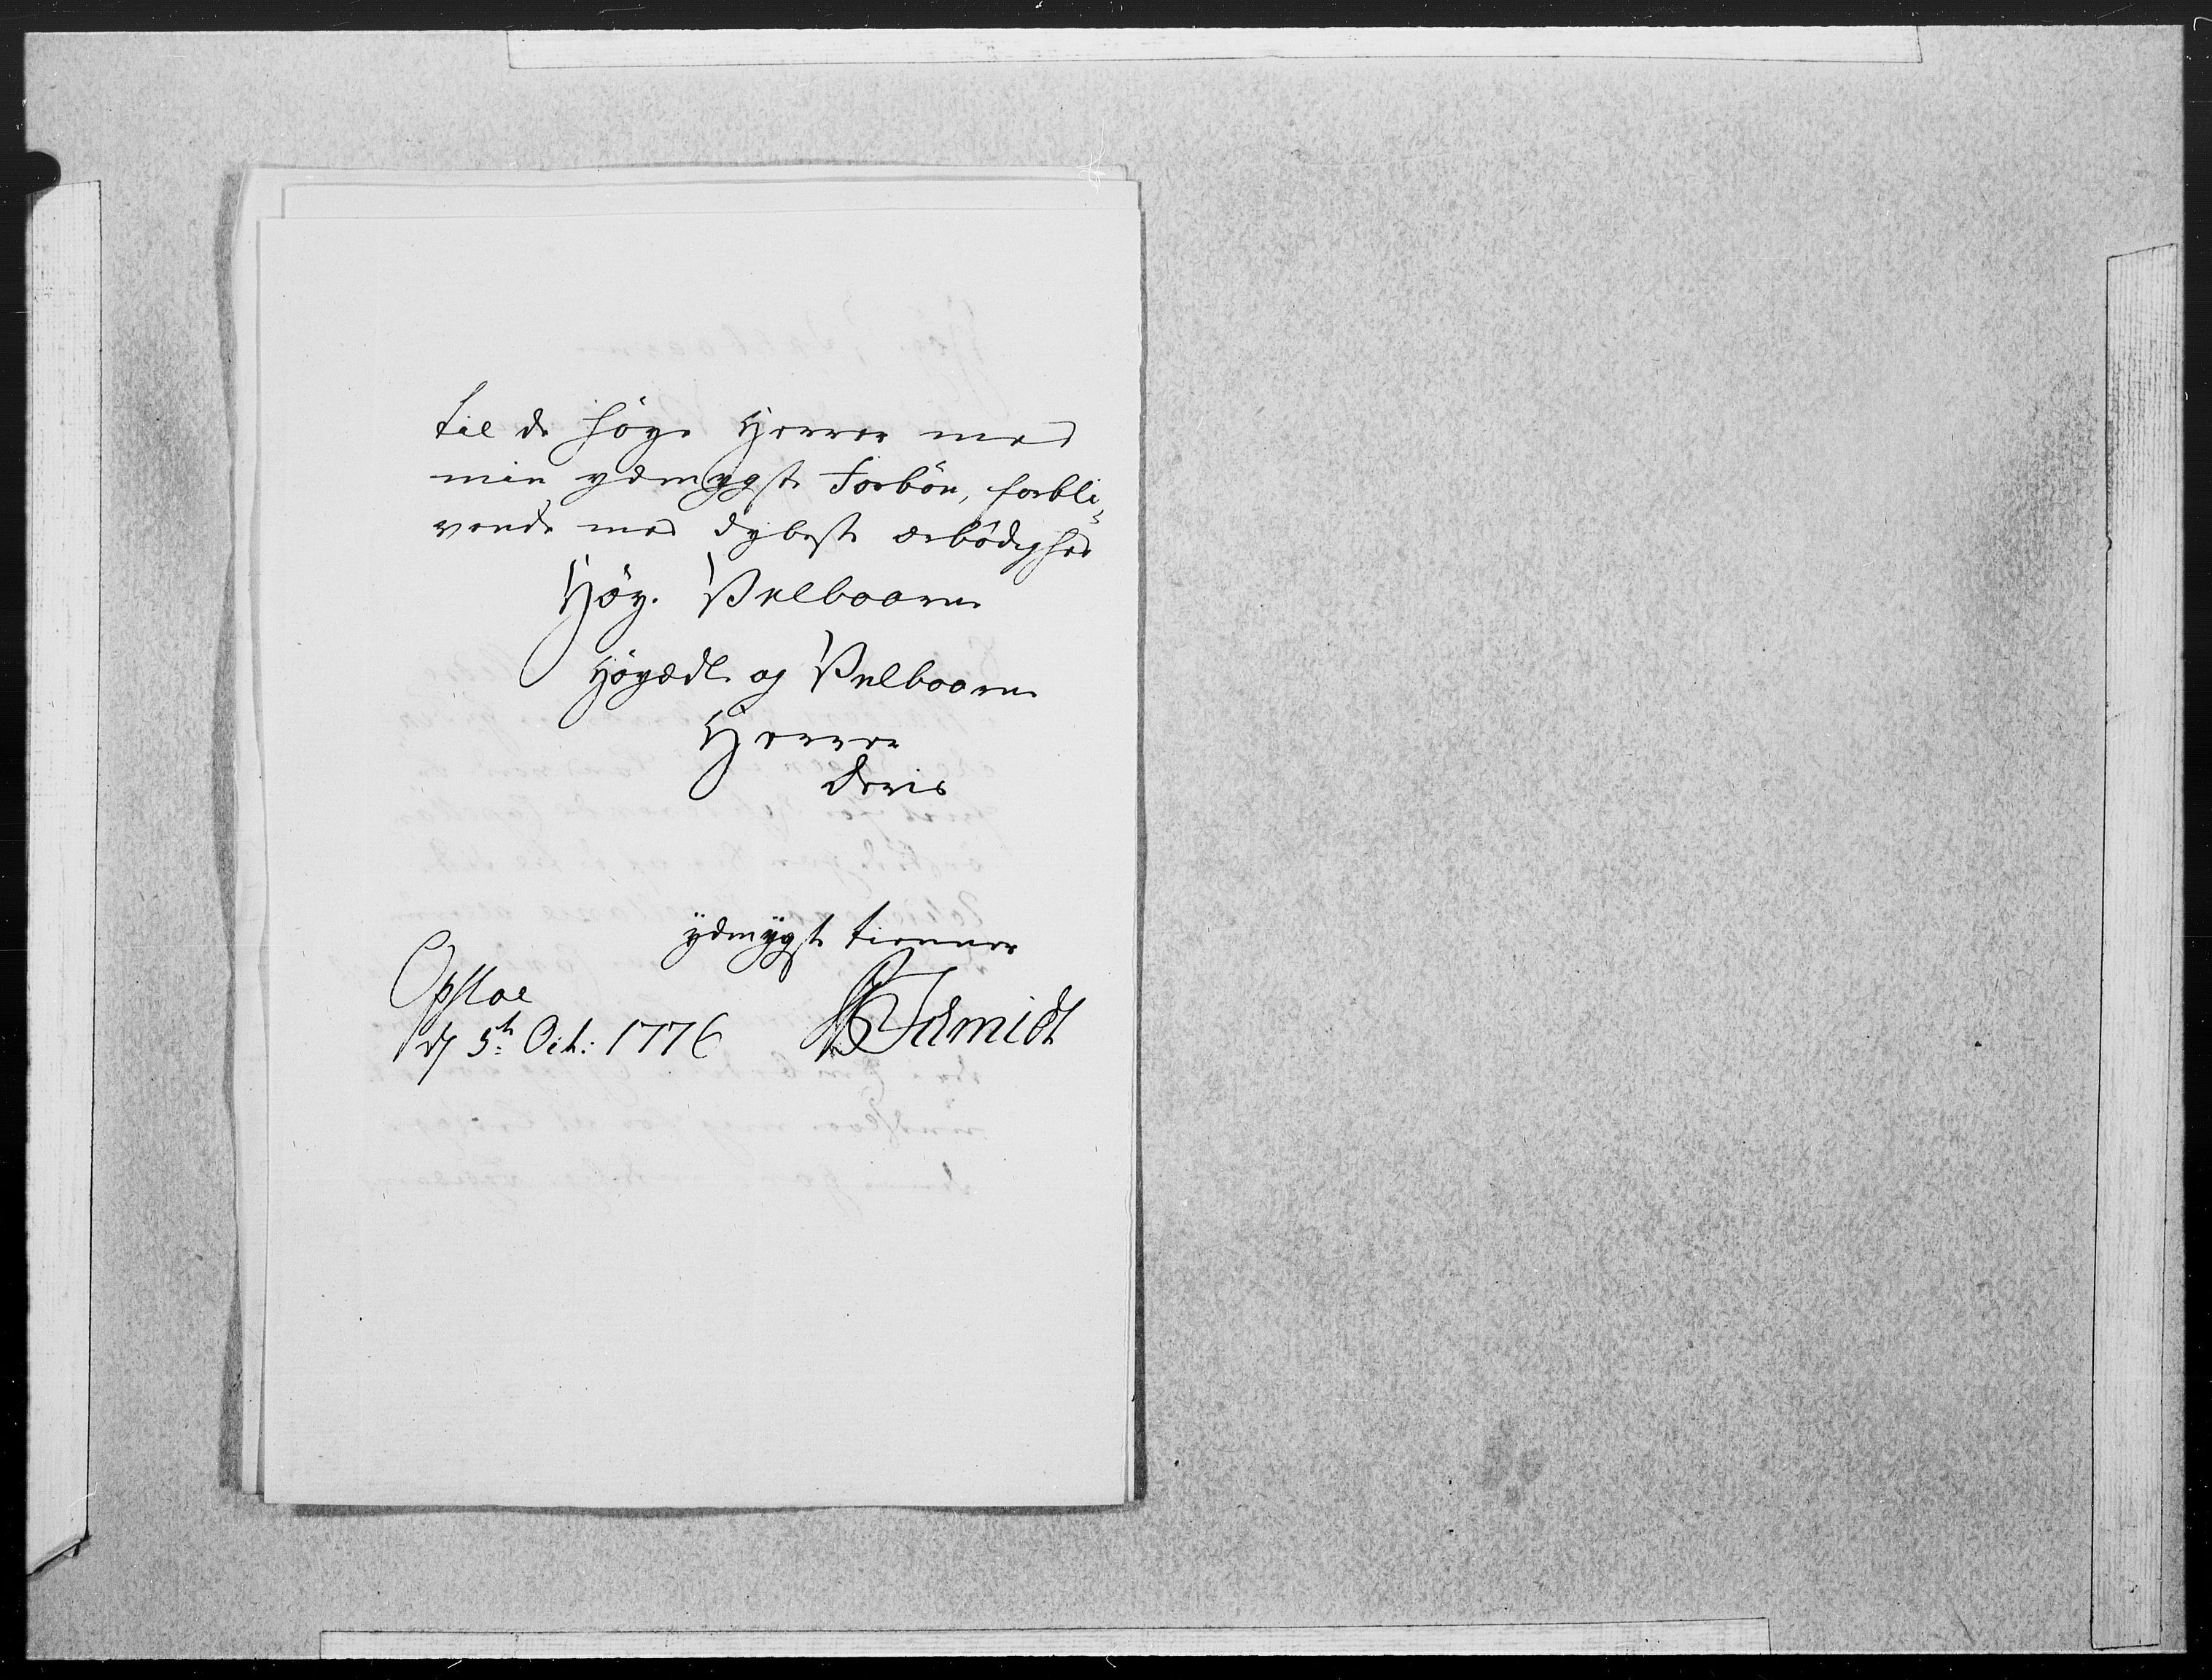 til de höye Herrer med
min ydmygste Forbön, forbli„
vende med dybeste ærbödighed
Höy. Velbaarne
Höyædle og Velbaarne
Herrer
Deris
ydmygste tiennere
Opsloe
d 5te Oct: 1776
Schmidt